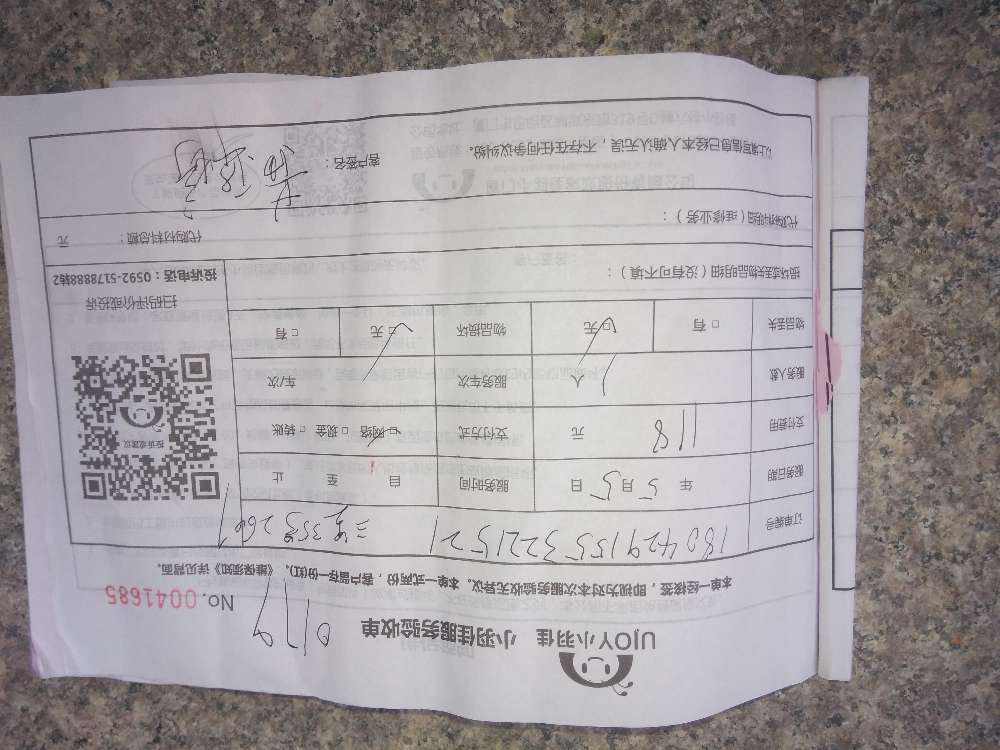 UJOY小羽佳 小羽佳服务验收单
0179
No. 0041685
本单一经核签，即视为对本次服务验收无异议。本单一式两份，客户留存一份(红)。《维保须知》详见背面。
订单编号 180429155322152
服务日期 年 5 月 5 日 服务时间 自 至 止
支付费用 118 元 支付方式 □网络 □现金 □转账
服务人数 1 人 服务车次 车/次
物品丢失 □有 □无 物品损坏 □无 □有
投诉或建议
扫码评价或投诉
投诉电话：0592-5178888转2
损坏或丢失物品明细（没有可不填）：
代购材料明细（维修业务）：
代购材料总额： 元
以上填写信息已经本人确认无误，不存在任何争议纠纷。 客户签名：